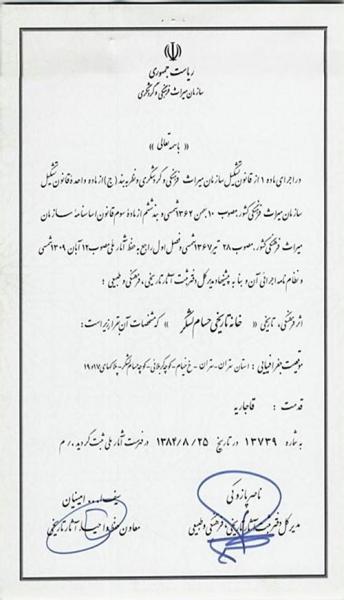 ریاست جمهوری
سازمان میراث فرهنگی و گردشگری
« باسمه تعالی »
در اجرای ماده ۱ از قانون تشکیل سازمان میراث فرهنگی و گردشگری و نظر به بند (ج) از ماده واحده قانون تشکیل
سازمان میراث فرهنگی کشور مصوب ۱۰ بهمن ۱۳۶۴ شمسی و بند ششم از ماده سوم قانون اساسنامه سازمان
میراث فرهنگی کشور مصوب ۲۸ تیر ۱۳۶۷ شمسی و فصل اول راجع به حفظ آثار ملی مصوب ۱۲ آبان ۱۳۰۹ شمسی
و نظام نامه اجرائی آن و بنا به پیشنهاد مدیر کل دفتر ثبت آثار تاریخی، فرهنگی و طبیعی ؛
اثر فرهنگی، تاریخی « خانه تاریخی حسام لشگر » که مشخصات آن بقرار زیر است :
موقعیت جغرافیایی : استان تهران - تهران - خ خیام - کوچه کربلائی - کوچه حسام لشگر - پلاکهای ۱۷ و ۱۹
قدمت : قاجاریه
به شماره ۱۳۷۳۹ در تاریخ ۱۳۸۴/۸/۲۵ در فهرست آثار ملی ثبت گردید . / م
ناصر پازوکی
مدیر کل دفتر ثبت آثار تاریخی، فرهنگی و طبیعی
سیف ا... امینیان
معاون حفظ و احیاء آثار تاریخی